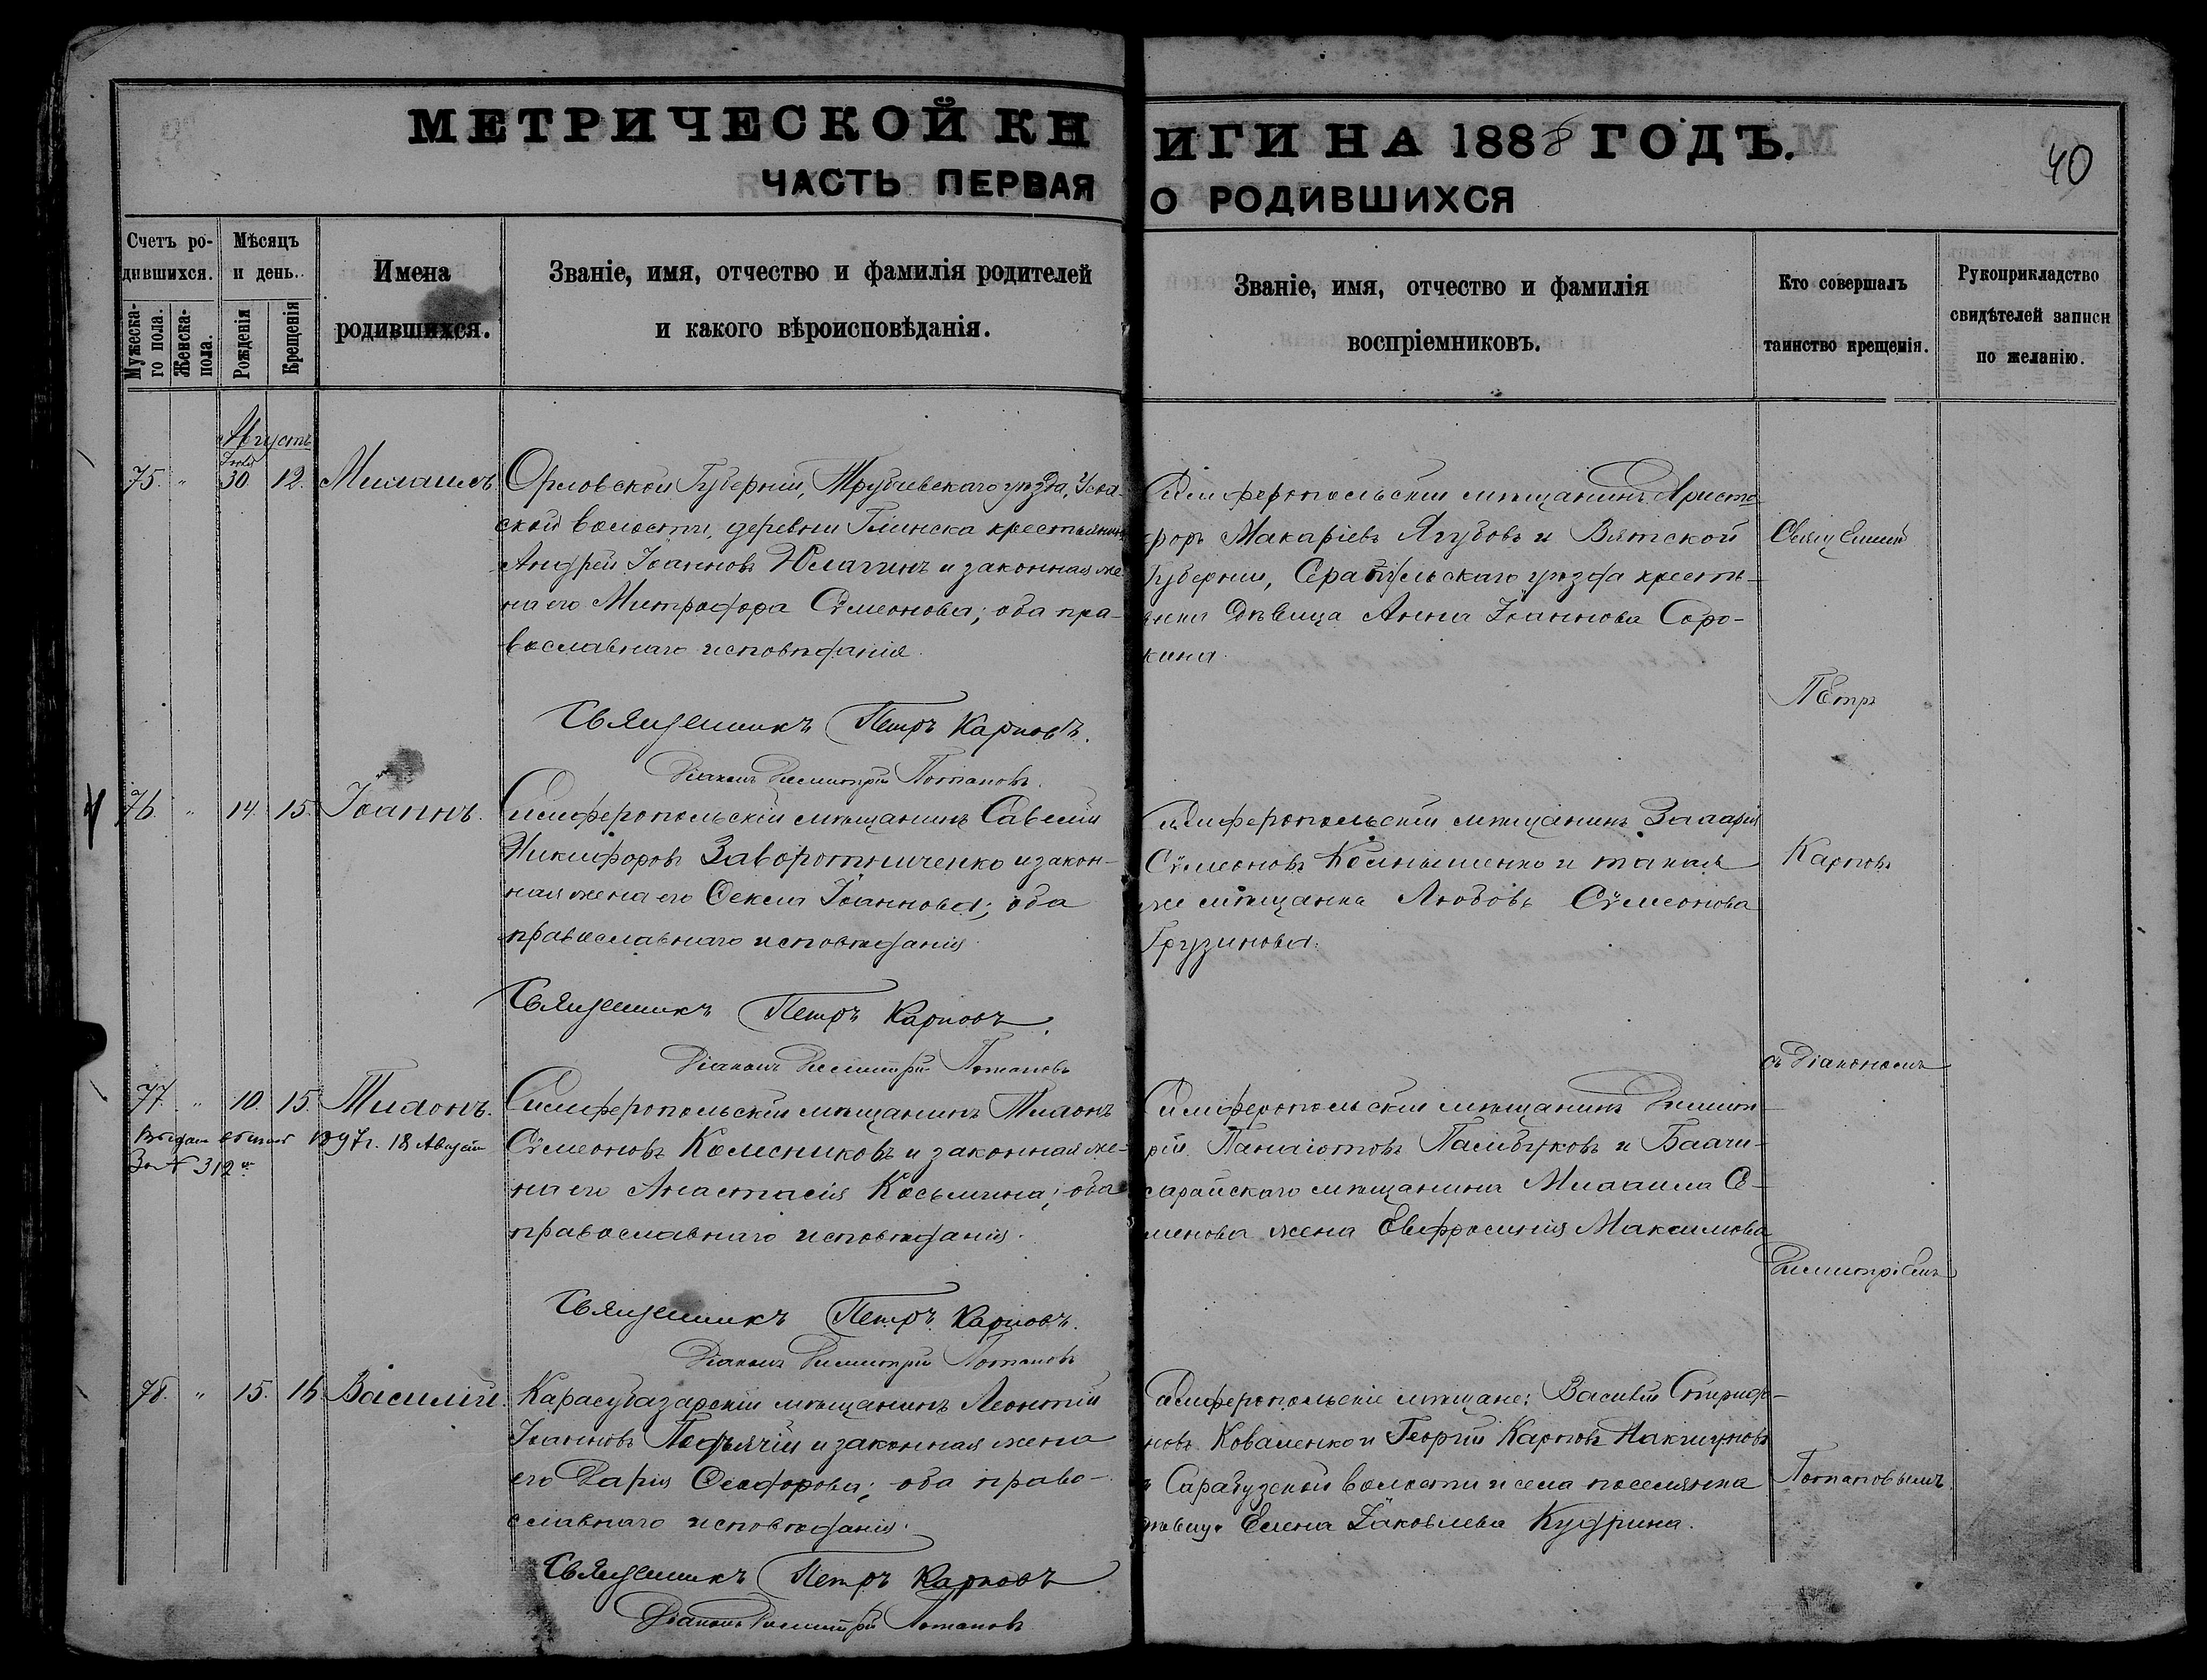 МЕТРИЧЕСКОЙ КНИГИ НА 1888 ГОДЪ.
40
ЧАСТЬ ПЕРВАЯ О РОДИВШИХСЯ
Счетъ ро-
дившихся.
Мужеска-
го пола.
Женска-
пола.
Мѣсяцъ
и день.
Рожденія
Крещенія
Имена
родившихся.
Званіе, имя, отчество и фамилія родителей
и какого вѣроисповѣданія.
Званіе, имя, отчество и фамилія
воспріемниковъ.
Кто совершалъ
таинство крещенія.
Рукоприкладство
свидѣтелей записи
по желанію.
Августъ
Іюля
75. " 30. 12. Михаилъ
Орловской Губерніи, Трубчевскаго уѣзда,
ской волости, деревни Глинска крестьянинъ
Андрей Іоанновъ Юлагинъ и законная же-
на его Митрофора Сѵмеонова; оба пра-
вославнаго исповѣданія.
Священникъ Петръ Карповъ.
Діаконъ Димитрій Потаповъ.
Симферопольскій мѣщанинъ Христо-
форъ Макаріевъ Ягубовъ и Вятской
Губерніи, Сарапульскаго уѣзда кресть-
янка дѣвица Анна Іоаннова Соро-
кина.
76. " 14. 15. Іоаннъ.
Симферопольскій мѣщанинъ Савелій
Никифоровъ Заворотниченко и закон-
ная жена его Ѳекла Іоаннова; оба
православнаго исповѣданія.
Священникъ Петръ Карповъ.
Діаконъ Димитрій Потаповъ
Симферопольскій мѣщанинъ Захарій
Сѵмеоновъ и такая
же мѣщанка Любовь Сѵмеонова
Грузинова.
77. " 10. 15. Тихонъ.
1897 г. 18 Августа
За № 312
Симферопольскій мѣщанинъ Тихонъ
Сѵмеоновъ Колесниковъ и законная же-
на его Анастасія Косьмина; оба
православнаго исповѣданія.
Священникъ Петръ Карповъ.
Діаконъ Димитрій Потаповъ
Симферопольскій мѣщанинъ Димит-
рій Панаіотовъ Памбуковъ и Бахчи-
сарайскаго мѣщанина Михаила Се-
менова жена Евфросинія Максимова
78. " 15. 16. Василій.
Карасубазарскій мѣщанинъ Леонтій
Іоанновъ Подъячій и законная жена
его Дарія Ѳеодорова; оба право-
славнаго исповѣданія.
Священникъ Петръ Карповъ
Діаконъ Димитрій Потаповъ
Симферопольскіе мѣщане: Василій Спиридо-
новъ Коваленко и Георгій Карповъ
и Сарабузской волости и села поселянка
дѣвица Елена Іаковлева Кудрина.
Священникъ
Петръ
Карповъ
съ Діакономъ
Димитріемъ
Потаповымъ.